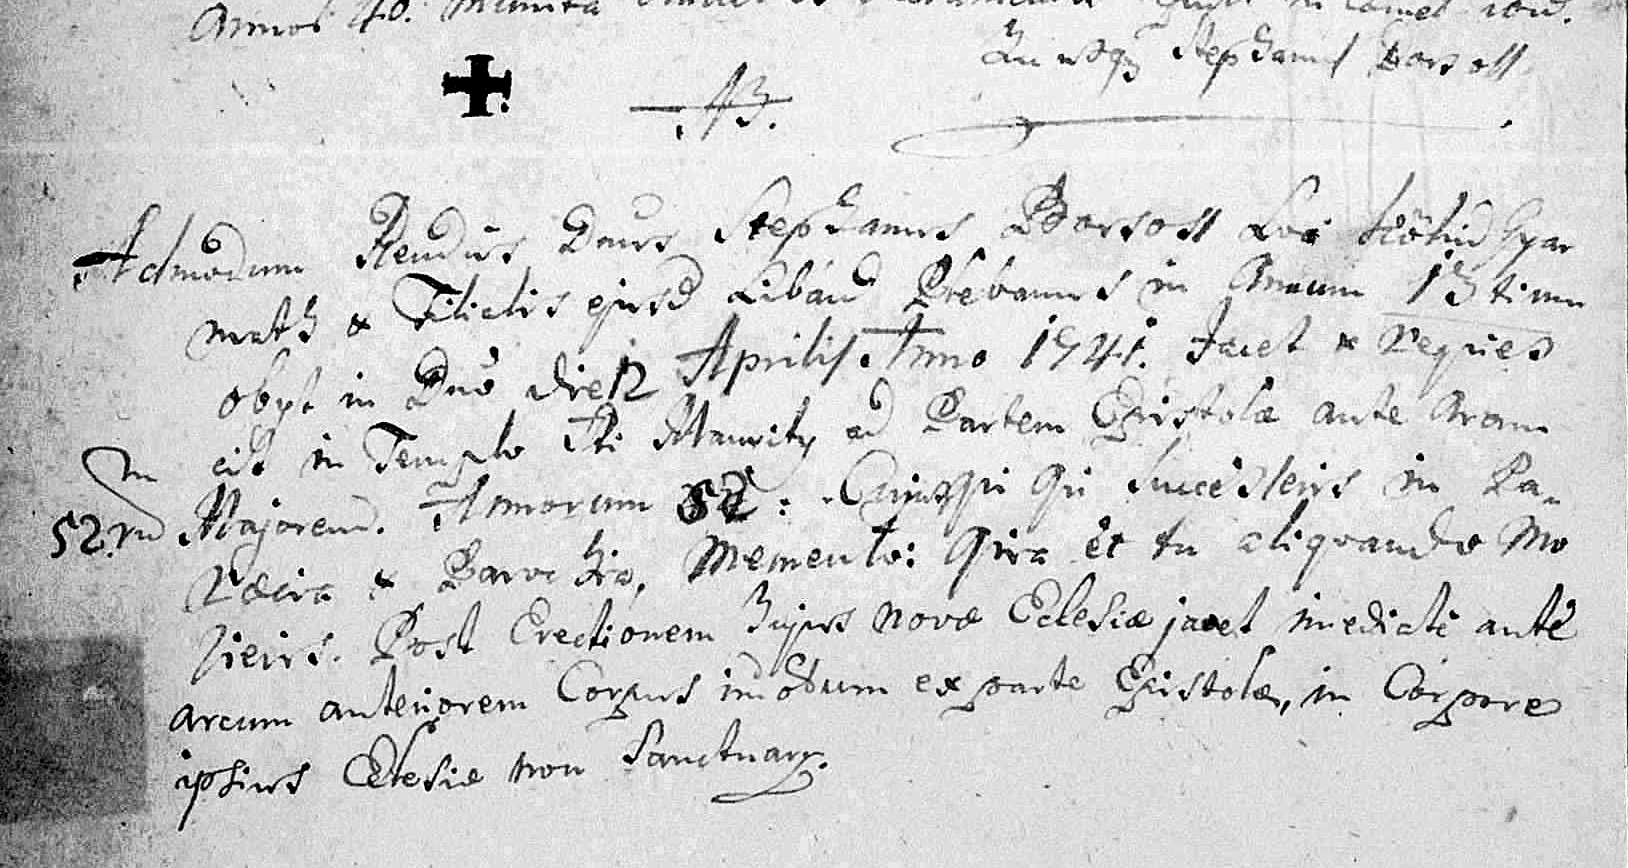 Annos 40. munita
Stephanus Borsoss
NB.
Admodum Rendus Dnus Stephanus Borsoss Loci Kohid Gyar
math & Filialis ejusd Libád Plebanus in Annum 13 tium
obyt in Dno die 12 Aprilis Anno 1741. Jacet & requies
cit in Templo Sti Maurity ad Partem Epistolæ ante Aram
in
52. Majorem. Annorum 52: qui Successeris in Pa-
ræcia & Parochia, Memento: Quia et tu aliquando Mo
rieris. Post Erectionem hujus novæ Eclesiæ jacet imediate ante
arcum anteriorem Corpus in odum ex parte Epistolæ, in Corpore
ipsius Eclesiæ non Sanctuary.